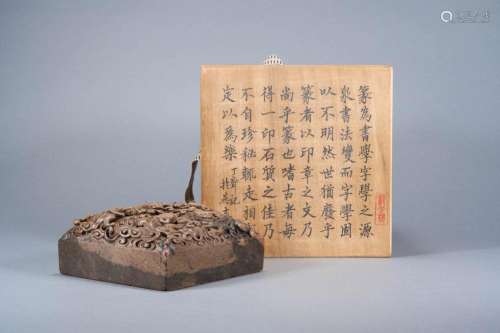 篆為書學字學之源
泉書法變而字學固
以不明然世猶廢乎
篆者以印章之文乃
尚乎篆也嗜古者每
得一印石質之佳乃
不自珍秘輒走相
定以為樂